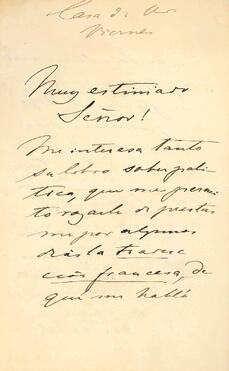 Casa de Vd
Viernes
Muy estimado
Señor!
Me interesa tanto
su libro sobre polí-
tica, que me permi-
to rogarle de prestar
me por algunos
días la traduc
ción francesa, de
que me habló